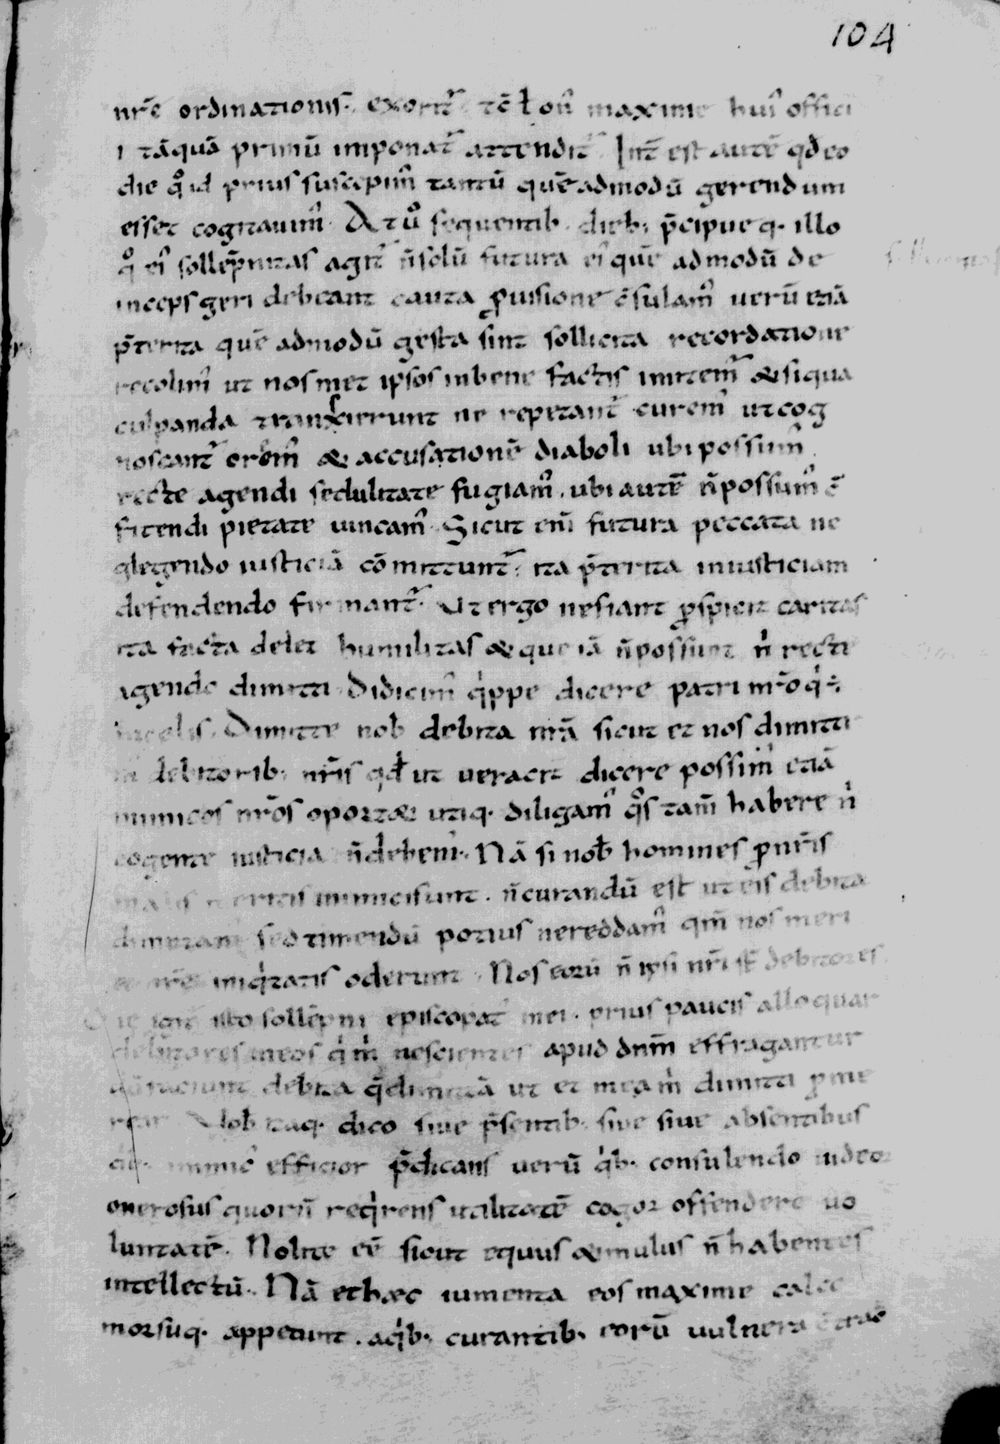 104
nr̄e ordinationis. exorit᷑ tc̄ł on᷒ maxime hui᷒ offici
i tāquā primū imponat᷑ attendit᷑. Int̄ est autē qđ eo
die qͦ id prius suscepim᷒ tantū quēadmodū gerendum
esset cogitauim᷒. At uͦ sequentib. dieb. p̄cipueq. illo
qͦ ei᷒ sollēpnitas agit᷑ n̄ solū futura ei᷒ quē admodū de
inceps geri debeant cauta ꝓuisione c̄sulam᷒ uerū etiā
p̄terita quē admodū gesta sint sollicita recordatione
recolim᷒ ut nos met ipsos in bene factis imitem᷑ & si qua
culpanda transierunt ne repetant᷑ curem᷒ ut cog
noscant᷑ orem᷒ & accusationē diaboli ubi possum᷒
recte agendi sedulitate fugiam᷒. ubi autē n̄ possum᷒ c̄
fitendi pietate uincam᷒. Sicut eni᷒ futura peccata ne
glegendo iusticiā cōmittunt᷑. ita p̄terita iniusticiam
defendendo firmant᷑. Ut ergo ne fiant ꝓspicit caritas
ita facta delet humilitas & que iā n̄ possunt n̍ recte
agendo dimitti. Didicim᷒ qͥppe dicere patri nr̄o qͥ ÷
in celis. Dimitte nob̄ debita nr̄a sicut et nos dimitti
m᷒ debitorib. nr̄is qđ ut ueracit᷑ dicere possim᷒ etiā
inimicos nr̄os oport& utiq. diligam᷒ qͦs tam̄ habere n̍
cogente iusticia n̄ debem᷒. Nā si nob̄ homines ꝓ nr̄is
malis meritis inimici sunt. n̄ curandū est ut eis debita
dimittam᷒ sed timendū potius ne reddam᷒ qm̄ nos meri
to nr̄e iniqͥtatis oderunt. Nos eorū n̄ ipsi nr̄i st̄ debitores.
Die igit᷑ isto sollēpni episcopat᷒ mei. prius paucis alloquar
debitores meos qͥ m̍ nescientes apud dn̄m effragantur
dū faciunt debita q̄ dimittā ut et mea m̍ dimitti ꝓme
rear. Vob̄ itaq. dico siue p̄sentib. siue siue absentibus
qͥb. inimic᷒ efficior p̄dicans uerū qͥb. consulendo uideor
onerosus quorū reqͥrens utilitatē cogor offendere uo
luntatē. Nolite eē sicut equus & mulus n̄ habentes
intellectū. Nā et hæc iumenta eos maxime calce
morsuq. appetunt. a qͥb. curantib. eorū uulnera c̄trac